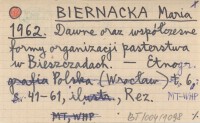 BIERNACKA Maria
1962. Dawne oraz współczesne
formy organizacji pasterstwa
w Bieszczadach. — Etno-
grafia Polska (Wrocław) t. 6,
s. 41-61, ilustr., Rez.
MT-WHP
MT, WHP